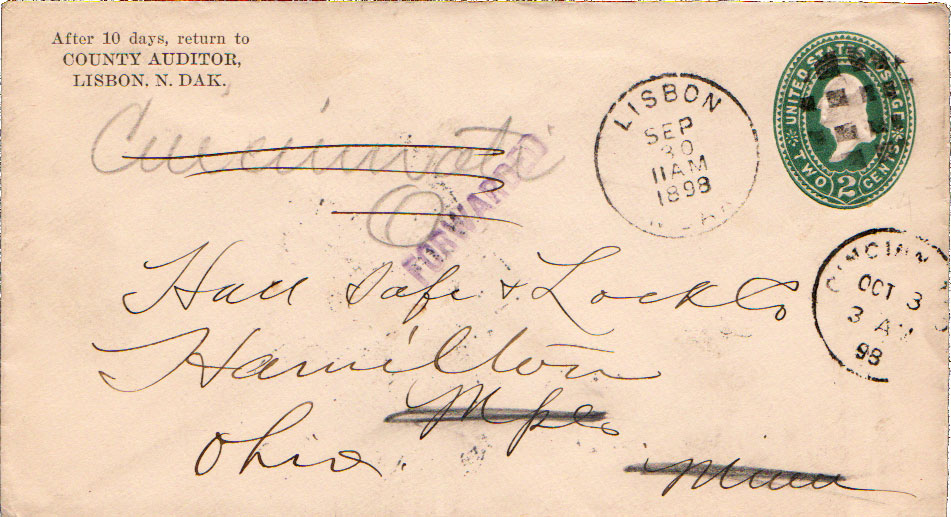 After 10 days, return to
COUNTY AUDITOR,
LISBON, N. DAK.
UNITED STATES POSTAGE
TWO 2 CENTS
LISBON
SEP
30
11AM
1898
Cincinnati
O
FORWARDED
CINCINN
OCT 3
3 AM
98
Hall Safe & Lock Co
Hamilton
Mpls
Ohio.
Minn